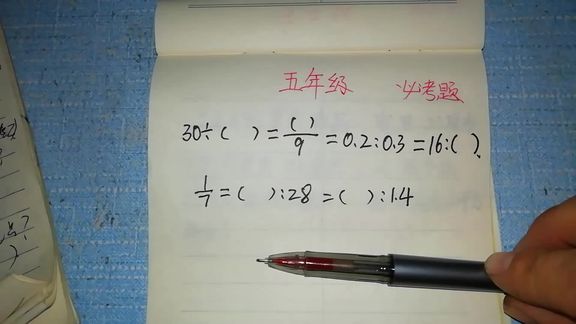 五年级 必考题
30÷( )=( )/9=0.2:0.3=16:( ).
1/7=( ):28=( ):1.4